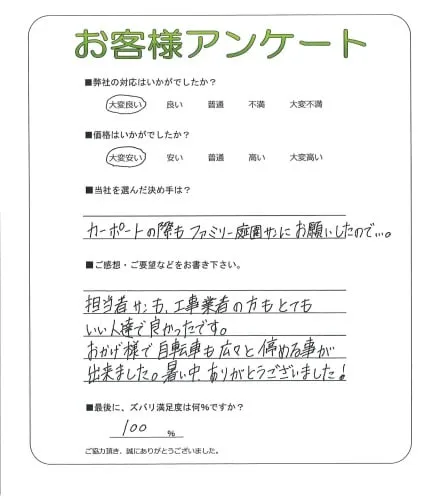 お客様アンケート
■弊社の対応はいかがでしたか?
大変良い 良い 普通 不満 大変不満
■価格はいかがでしたか?
大変安い 安い 普通 高い 大変高い
■当社を選んだ決め手は?
カーポートの際もファミリー庭園サンにお願いしたので…。
■ご感想・ご要望などをお書き下さい。
担当者サンも、工事業者の方もとても
いい人達で良かったです。
おかげ様で自転車も広々と停める事が
出来ました。暑い中、ありがとうございました!
■最後に、ズバリ満足度は何%ですか?
100 %
ご協力頂き、誠にありがとうございました。